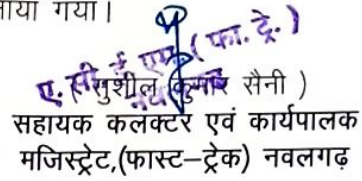 ाया गया।
ए. सी. ई. एम. (फा. ट्रे.)
(सुशील कुमार सैनी )
सहायक कलक्टर एवं कार्यपालक
मजिस्ट्रेट,(फास्ट–ट्रेक) नवलगढ़